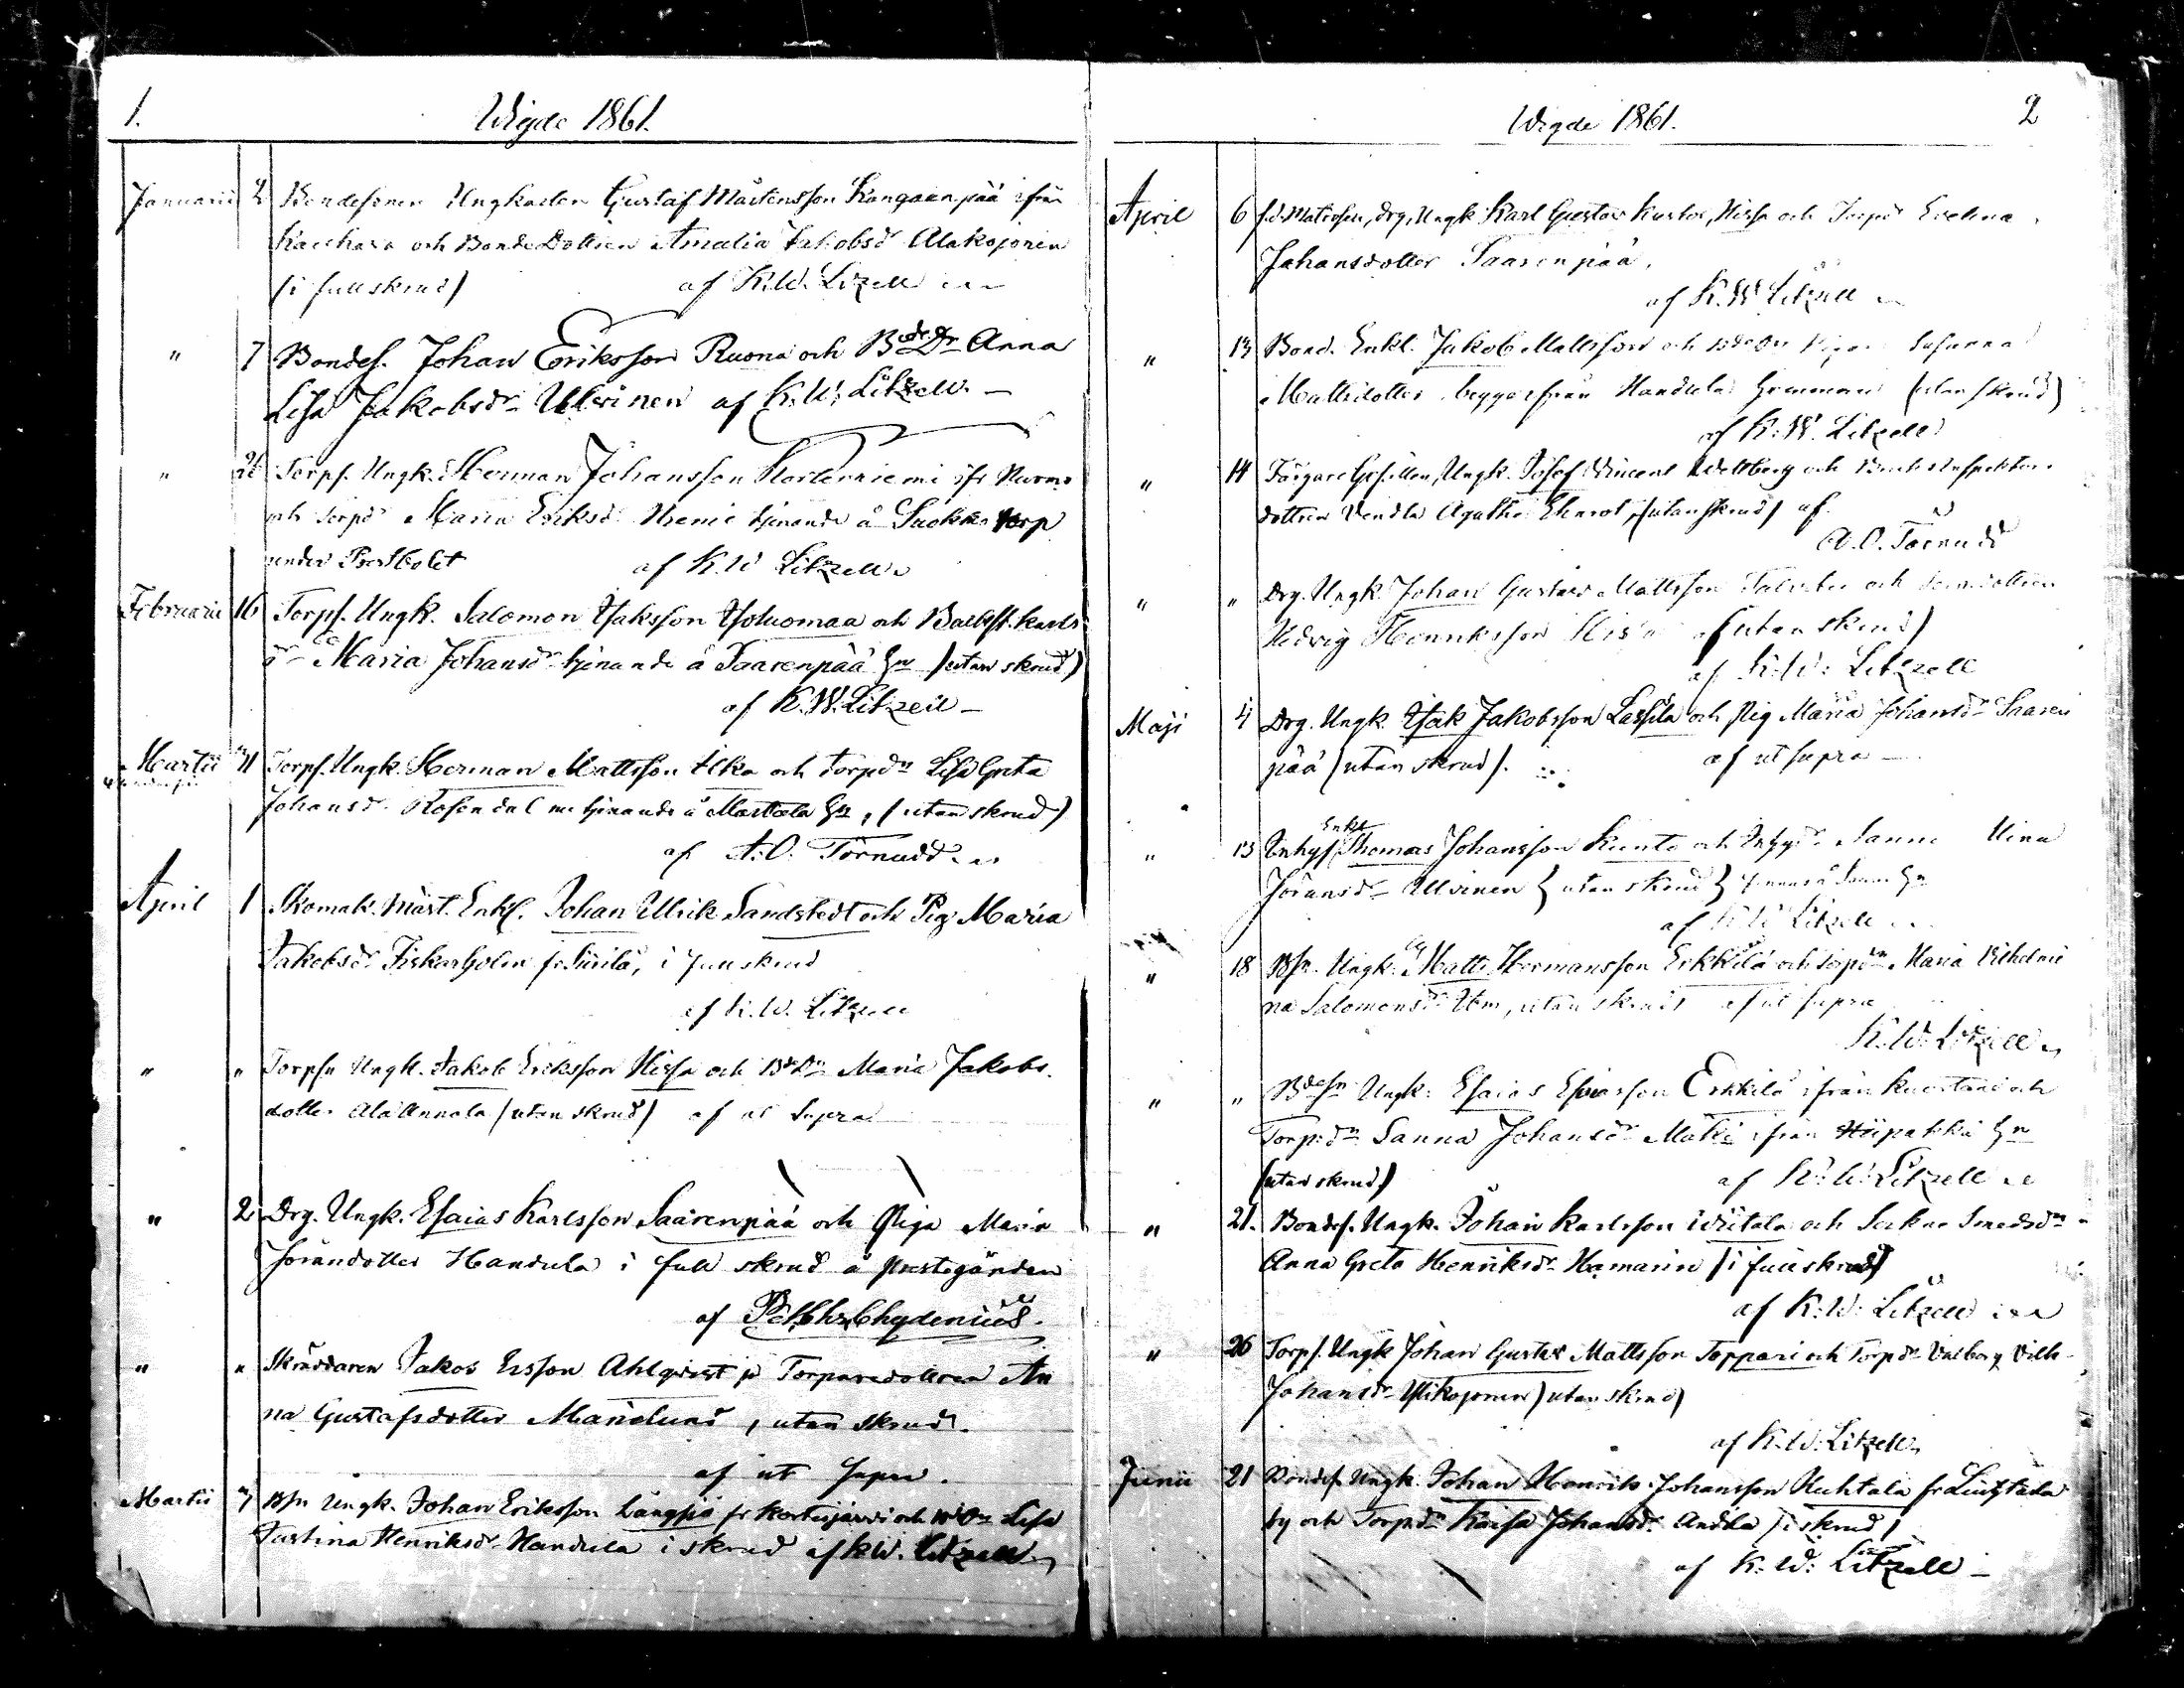 1.
Wigde 1861.
Januarii 2 Bondesonen Ungkarlen Gustaf Mårtensson Kangaanpää ifrån
Kauhava och BondeDottren Amalia Jakobsdr Alakojonen
(i full skrud) af K.W. Litzell
" 7 Bondes. Johan Eriksson Ruona och BdeDr Anna
Lisa Jakobsdr Ulvinen af K.W. Litzell
" 26 Torps. Ungk. Herman Johansson Kortenniemi ifr Nurmo
och Torpdr Maria Eriksdr tjenande å Luokka torp
under Prestbolet af K.W Litzell
Februarii 16 Torps. Ungk. Salomon Isaksson Isoluomaa och
Maria Johansdr tjenande å Saarenpää hn (utan skrud)
af K.W. Litzell
Martii 31 Torps. Ungk. Herman Mattsson Ilka och torpdn Lisa Greta
Johansdr Rosendal tjenande å Marttala hn, (utan skrud)
af A.O. Törnudd
April 1 Skomak. Mäst. Enkl. Johan Ulrik Sandstedt och Pig. Maria
Jakobsdr Fiskarholm fr Siirilä, i full skrud
af K.W. Litzell
" " Torpsn Ungk. Jakob Eriksson Hissa och BdeDr Maria Jakobs-
dotter AlaAnnala (utan skrud) af ut Supra
" 2 Drg. Ungk. Esaias Karlsson Saarenpää och Piga Maria
Jöransdotter Handula i full skrud å prestegården
af Chydenius.
" " Skräddaren Jakob Ersson Ahlqvist jo Torparedottren An
na Gustafsdotter Marielund, utan skrud.
af ut supra.
Martii 7 Bsn Ungk. Johan Eriksson Långsjö fr Kortesjärvi och Lisa
Justina Henriksdr Handula i skrud af K.W. Litzell
Wigde 1861.
2
April 6 Drg. Ungk. Karl Gustav Hissa och Torpdr Evelina
Johansdotter Saarenpää.
af K.W Litzell
" 13 Bond. Enkl. Jakob Mattsson och Susanna
Mattsdotter begge ifrån Handula hemman (utan skrud)
af K.W. Litzell
" 14 Färgare Gesällen, Ungk. Josef Vincent Wellberg och
dottren Vendla Agatha, (utan skrud) af
A.O. Törnudd
" " Drg. Ungk. Johan Gustav Mattsson och
Hedvig Henriksson (utan skrud)
af K.W. Litzell
Maji 4 Drg. Ungk. Isak Jakobsson Lassila och Pig Maria Johansdr Saaren
pää (utan skrud). af ut supra
" 13 Inhys Enkl Thomas Johansson Kunto och Inhysdr Sanna
Jöransdr Ullvinen (utan skrud)
af K.W Litzell
" 18 Bsn. Ungk. Matts Hermansson Erkkilä och torpdn Maria Vilhelmi
na Salomonsdr, utan skrud, af ut supra
K.W. Litzell
" " Bdesn Ungk. Esaias Esaiasson Erkkilä ifrån Kuortane och
Torp:dn Sanna Johansdr Mäki ifrån Hiipakka hn
(utan skrud) af K.W. Litzell
" 21. Bondes. Ungk. Johan Karlsson Wiitala och Sockne Smedsdn
Anna Greta Henriksdr Hamarin (i full skrud)
af K.W. Litzell
" 26 Torps. Ungk Johan Gustav Mattsson Toppari och Torpdr Valborg Vilh
Johansdr Ylikojonen (utan skrud)
af K.W. Litzell
Junii 21 Bondes. Ungk. Johan Henrik Johansson Huhtala fr
by och Torpdn Kaisa Johansdr Andila (i skrud)
af K.W. Litzell